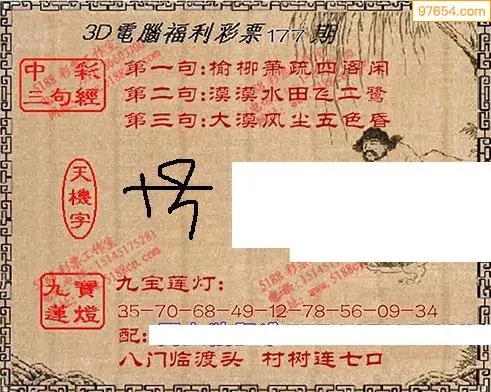 97654.com
3D電腦福利彩票177期
中彩三句經
第一句:榆柳萧疏四阁闲
第二句:漠漠水田飞二鹭
第三句:大漠风尘五色昏
天機字
5188 彩票工作室
15145175281
九寶蓮燈
九宝莲灯:
35-70-68-49-12-78-56-09-34
配:
八门临渡头 村树连七口